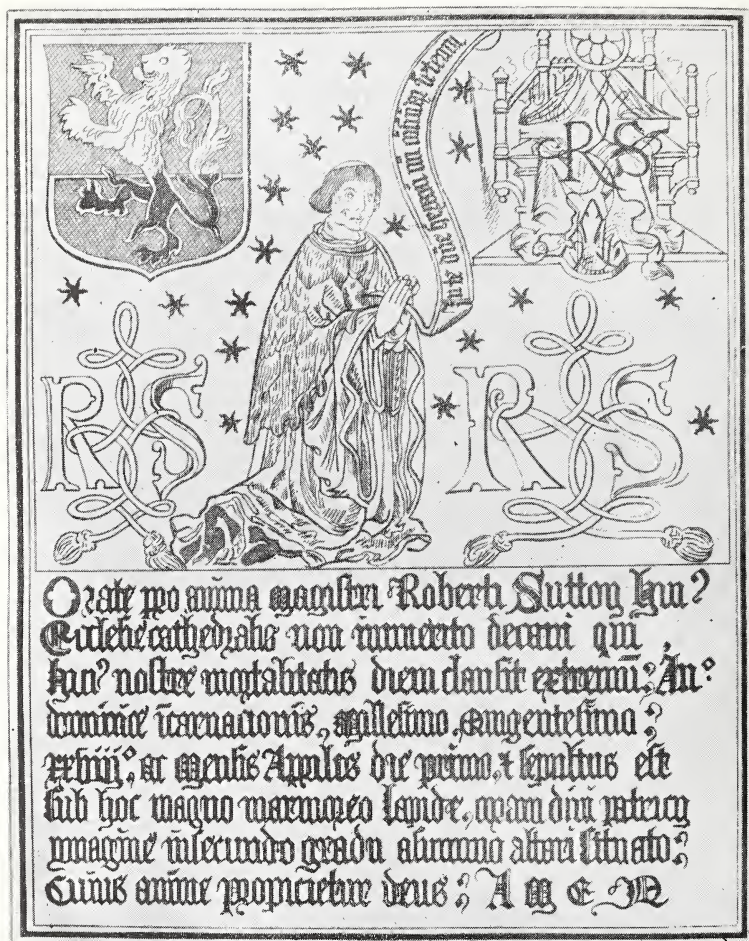 In te dn̄e speravi nō cōfundar ī eternū
RS
RS
RS
Orate pro anima magistri Roberti Sutton huiꝰ
Ecclesie cathedralis non inmerito decani qui
huiꝰ nostre mortalitatis diem clausit extremū : An°
dominice īcarnacionis, Millesimo, Quingentesimo :
xxviij°. ac Mensis Appilis die primo, & sepultus est
Sub hoc magno marmoreo lapide, coram divi patricij
ymagine in secundo gradu a sūmo altari situato :
Cuius anime propicietur deus : AMEN